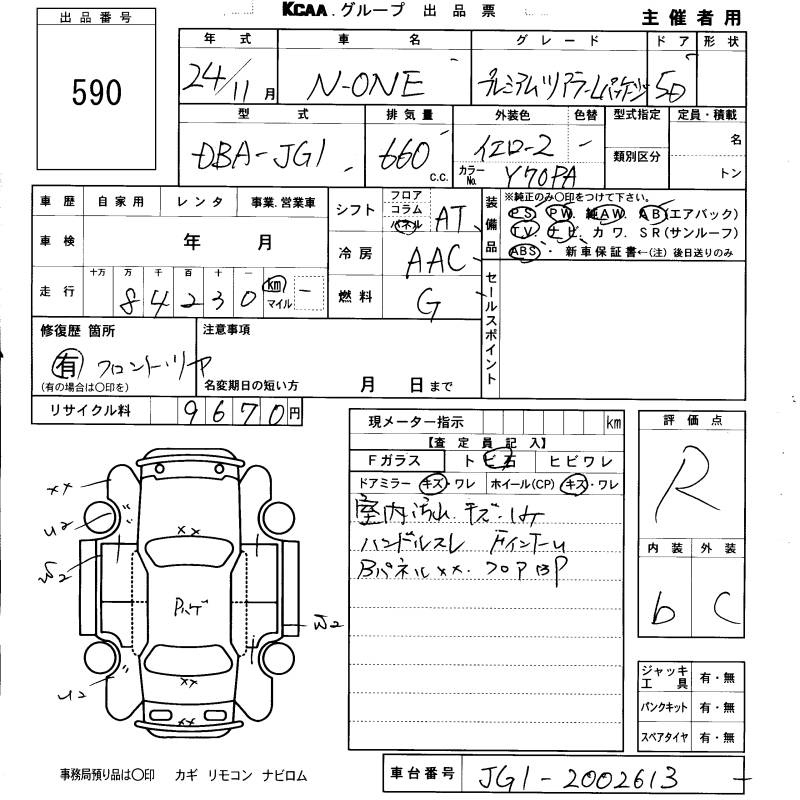 KCAA.グループ 出品票
主催者用
出品番号
590
年式 車名 グレード ドア 形状
24/11月 N-ONE プレミアムツアラーLパッケージ 5D
型式 排気量 外装色 色替 型式指定 定員・積載
DBA-JG1 660 c.c. イエロー2 - 類別区分 名
カラーNo. Y70PA トン
車歴 自家用 レンタ 事業.営業車
車検 年 月
走行 十万 万 千 百 十 一
84230 km マイル -
シフト フロア コラム パネル AT
冷房 AAC
燃料 G
装備品 ※純正のみ〇印をつけて下さい。
PS. PW. 純AW. AB(エアバック)
TV. ナビ. カワ. SR(サンルーフ)
ABS. 新車保証書←(注)後日送りのみ
セールスポイント
修復歴 箇所
有 フロント・リヤ
(有の場合は〇印を)
注意事項
名変期日の短い方 月 日まで
リサイクル料 9670円
現メーター指示 km
【査定員記入】
Fガラス トビ石 ヒビワレ
ドアミラー キズ・ワレ ホイール(CP) キズ・ワレ
室内汚レ.キズ.
ハンドルスレ
Bパネルxx. フロア部P
評価点
R
内装 外装
b C
xx
U2
W2
xx
W2
xx
U2
xx
ジャッキ工具 有・無
パンクキット 有・無
スペアタイヤ 有・無
事務局預り品は〇印 カギ リモコン ナビロム
車台番号 JG1-2002613